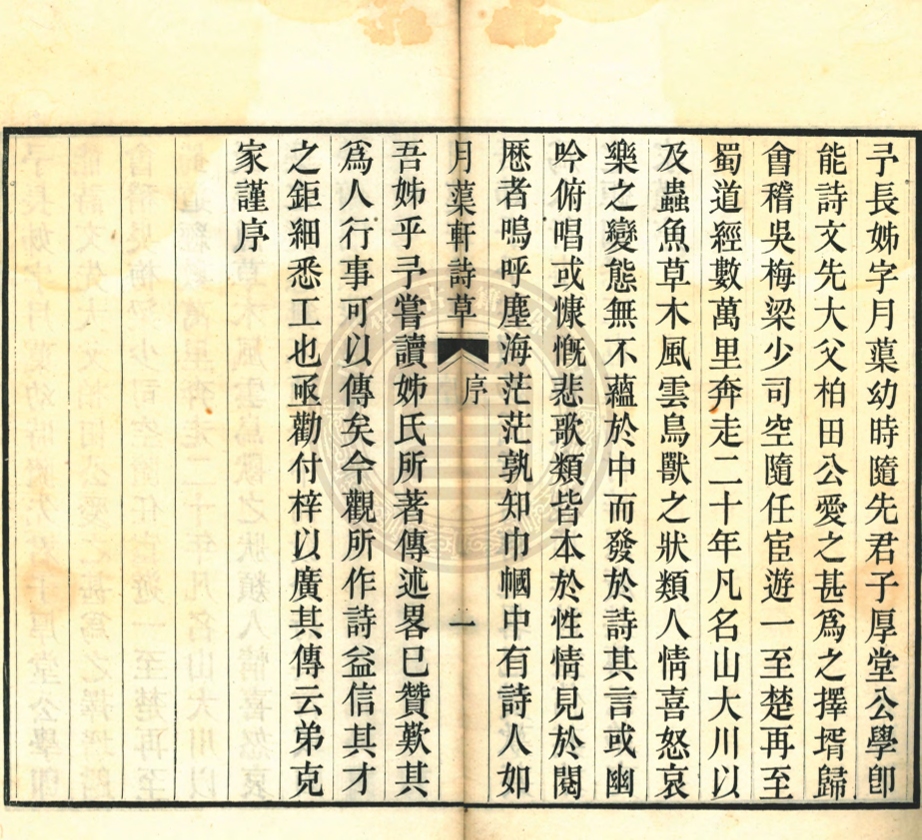 予長姊字月蕖幼時隨先君子厚堂公學卽
能詩文先大父柏田公愛之甚爲之擇壻歸
會稽吳梅梁少司空隨任宦遊一至楚再至
蜀道經數萬里奔走二十年凡名山大川以
及蟲魚草木風雲鳥獸之狀類人情喜怒哀
樂之變態無不蘊於中而發於詩其言或幽
吟俯唱或慷慨悲歌類皆本於性情見於閱
歷者嗚呼塵海茫茫孰知巾幗中有詩人如
月蕖軒詩草 序 一
吾姊乎予嘗讀姊氏所著傳述畧已贊歎其
爲人行事可以傳矣今觀所作詩益信其才
之鉅細悉工也亟勸付梓以廣其傳云弟克
家謹序